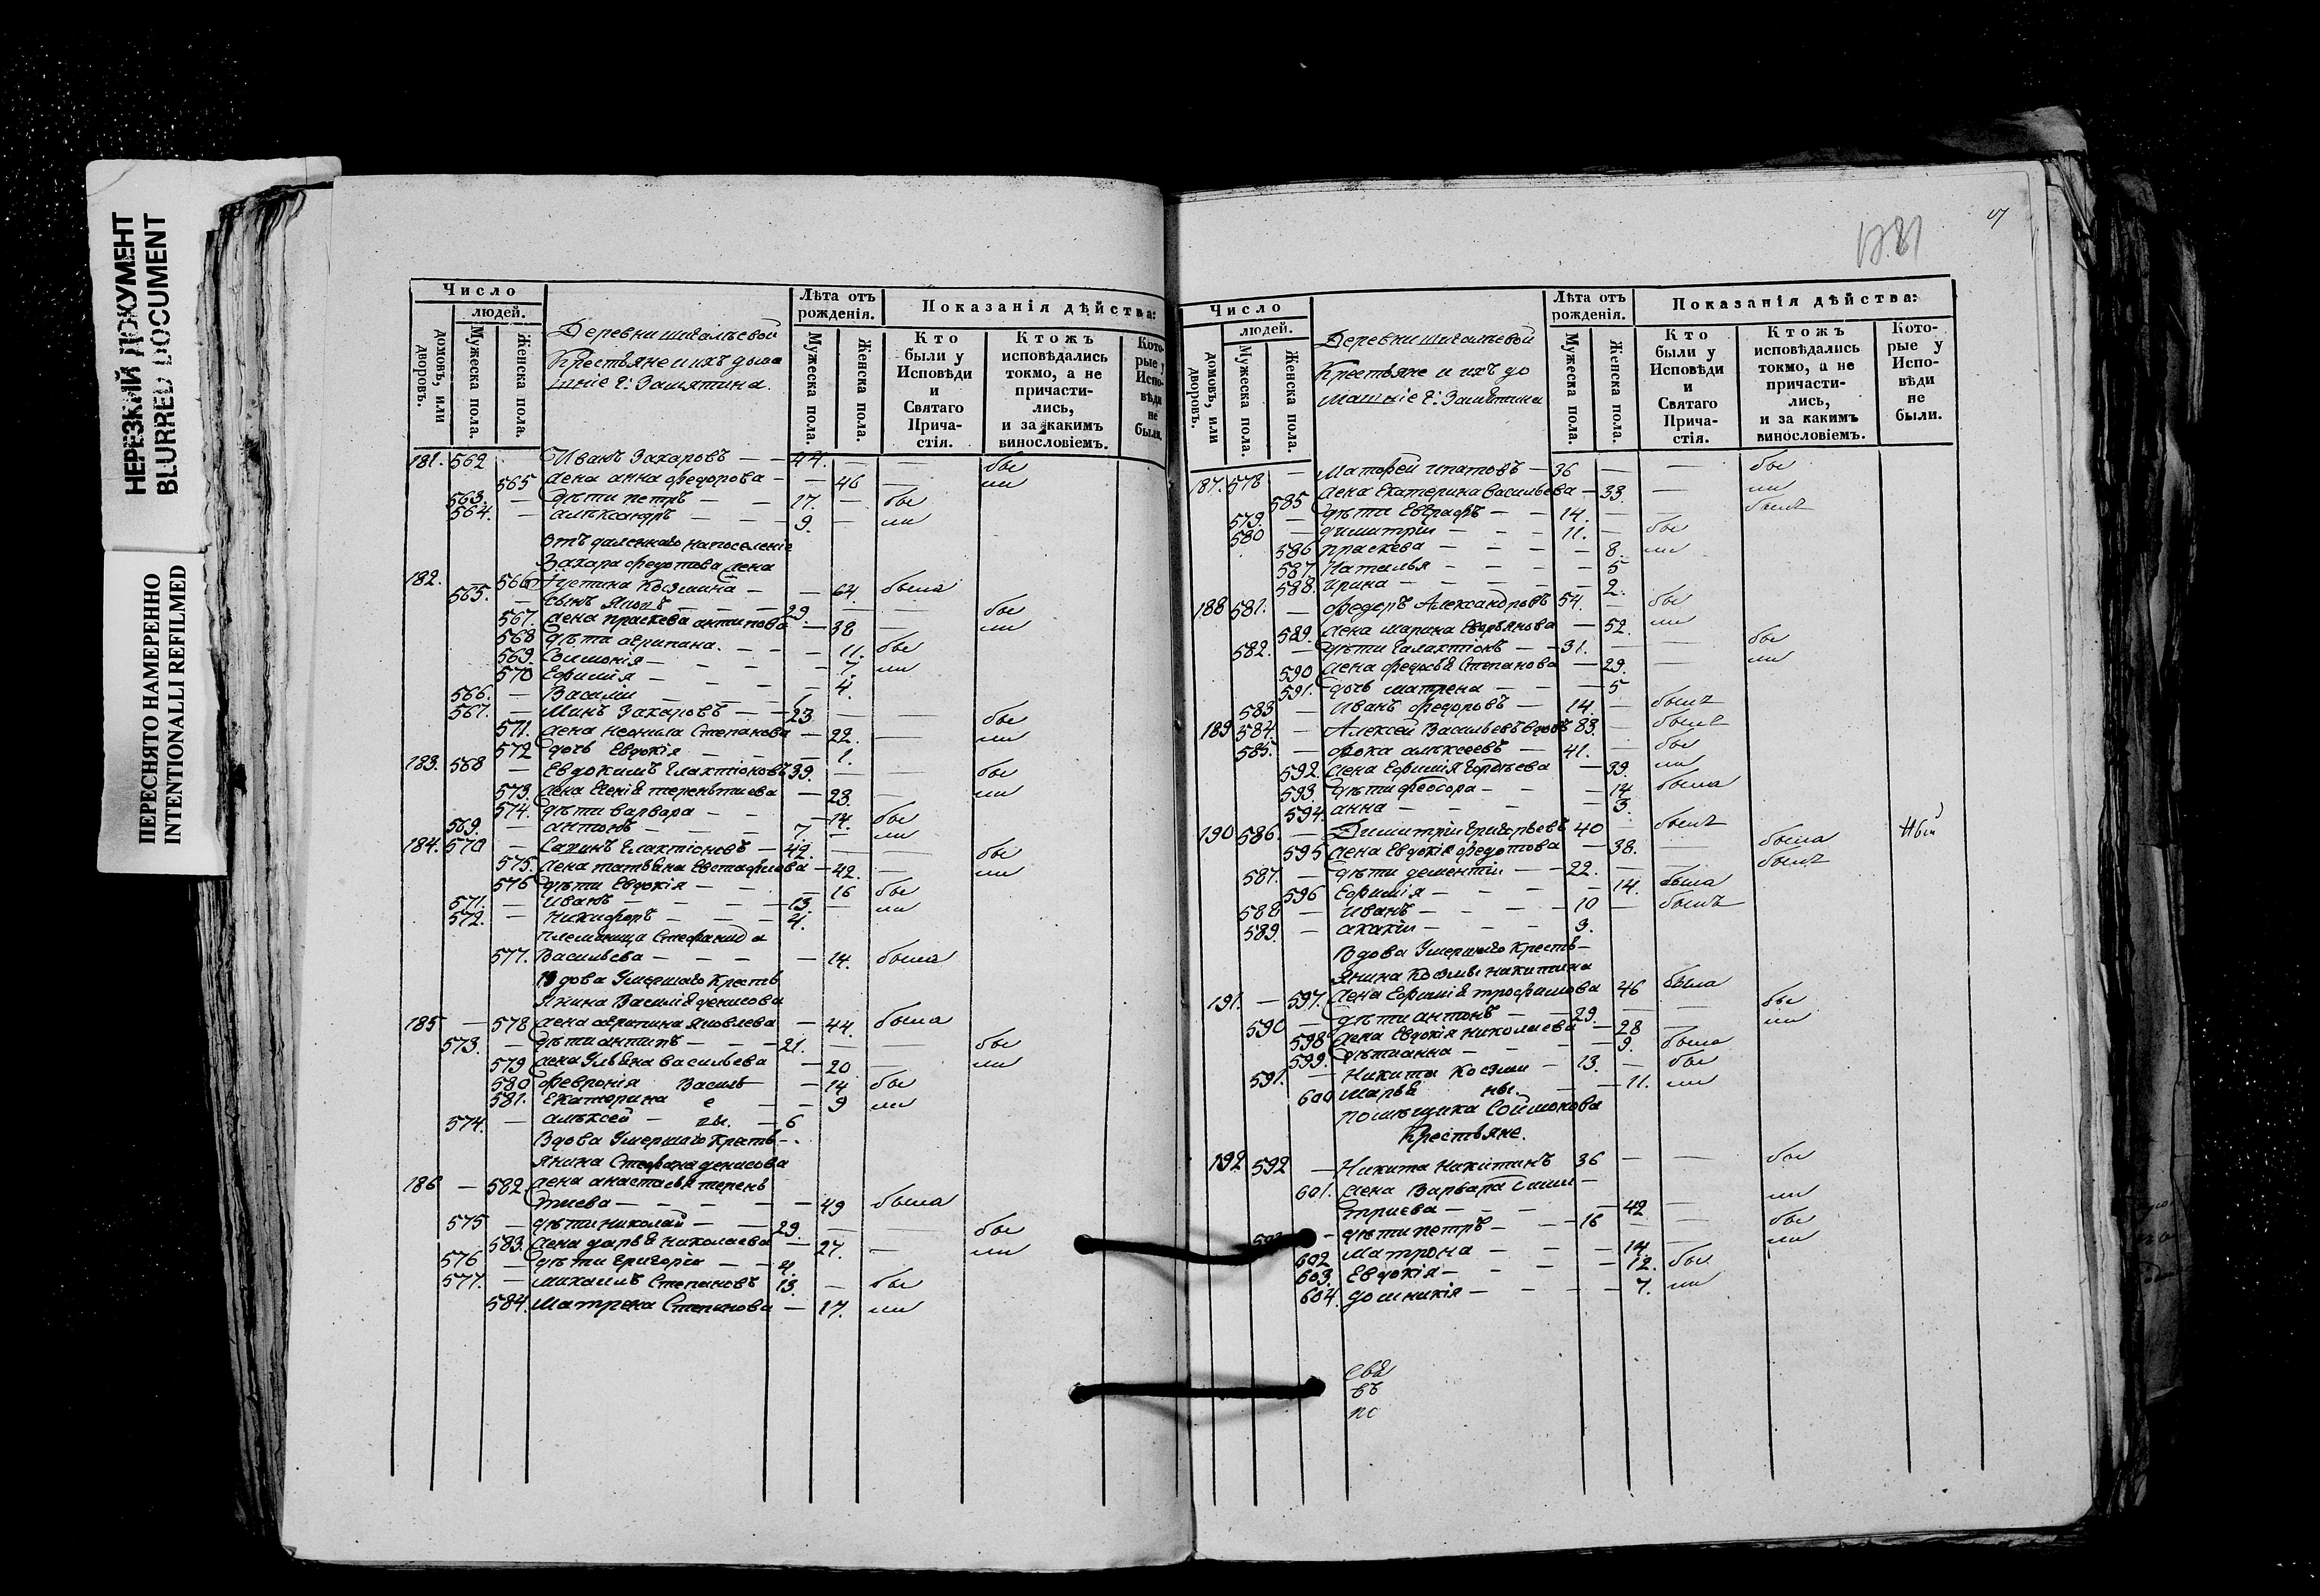 НЕРЕЗКИЙ ДОКУМЕНТ
BLURRED DOCUMENT
ПЕРЕСНЯТО НАМЕРЕННО
INTENTIONALLI REFILMED
Число
людей.
домовъ, или дворовъ.
Мужеска пола.
Женска пола.
Деревни шигалѣевой
Крестьяне и ихъ дома
шніе Г: Замятнина.
Лѣта отъ рожденія.
Мужеска пола.
Женска пола.
Показанія дѣйства:
Кто были у Исповѣди и Святаго Причастія.
Ктожъ исповѣдались токмо, а не причастились, и за какимъ винословіемъ.
Которые у Исповѣди не были.
181. 562 Иванъ Захаровъ — — 44. — — бы
565 жена анна федорова — — 46 — ли
563. — дѣти петръ — — 17. — бы
564. — алѣксандръ — — — 9. — ли
отъ даленнаго на поселеніе
Захара федотова жена
182. — 566 Іустина Козмина — — 64. была
565. — сынъ Яковъ — — — 29. — — бы
567. жена праскева антипова — 38 — ли
568 дѣти агрипина. — — — 11. бы
569. Соломонія — — — — 7. ли
570 Ефимія — — — — 4.
566. — Василіи — — — 6
567. — Минъ Захаровъ — — 23 — — бы
571. жена неонила Степанова — 22. — ли
572 дочь Евдокія — — — — 1.
183. 568 — Евдокимъ Галахтіоновъ 39. — — бы
573. жена Ксенія терентиева — 23. — ли
574. дѣти варвара — — — 14. бы
569. — антонъ — — — 7. — ли
184. 570 — Савинъ Галахтіоновъ — 42. — — бы
575. жена татьяна Евстафиева — 42. — ли
576 дѣти Евдокія — — — 16 бы
571. — иванъ — — — — 13 — ли
572. — никифоръ — — — 4.
племянница Стефанида
577. Васильева — — — — 14. была
Вдова Умершаго Кресть
янина Василія денисова
185 — 578 жена агрипина яковлева — 44. была
573. — дѣти антипъ — — 21. — — бы
579 жена Ульяна васильева — 20 — ли
580 февронія Василь — 14 бы
581. Екатерина е — — 9 ли
574. — алѣксей — вы. — 6
Вдова Умершаго Кресть —
янина Стефана денисова
186 — 582 жена анастасія терень
тиева — — — — — 49 была
575 — дѣти николай — — 29. — — бы
583. жена дарья николаева — 27. — ли
576 — дѣти григоріи — — 4.
577. — михаилъ Степановъ 13. — бы
584. Матрена Степанова — 17. ли
Число
людей.
домовъ, или дворовъ.
Мужеска пола.
Женска пола.
Деревни шигалѣевой
Крестьяне и ихъ до
машніе Г: Замятнина
Лѣта отъ рожденія.
Мужеска пола.
Женска пола.
Показанія дѣйства:
Кто были у Исповѣди и Святаго Причастія.
Ктожъ исповѣдались токмо, а не причастились, и за какимъ винословіемъ.
Которые у Исповѣди не были.
187. 578 — Матфей ипатовъ — 36 — — бы
585 жена Екатерина васильева — 33 — ли
579. — дѣти Евграфъ — — 14. — — былъ
580 — димитріи — — — 11. — бы
586 праскева — — — — 8. ли
587. Наталья — — — — 5
588. ирина — — — — — 2.
188 581. — федоръ Александровъ 54. — бы
589. жена марина Емельянова — 52. ли
582. — дѣти Галахтіонъ — — 31. — — бы
590 жена федосья Степанова — 29. — ли
591. дочь матрена — — — 5
583 — иванъ федоровъ — 14. — былъ
189 584. — Алексей Васильевъ вдовъ 83. — былъ
585. — фока алѣксеевъ — 41. — бы
592. жена Ефимія Гордѣева — 39. ли
593. дѣти феодора — — — 14 была
594. анна — — — — — 3.
190 586. — Димитріи григорьевъ 40 — былъ
595 жена Евдокія федотова — 38. — была
587. — дѣти дементіи — — 22. — — былъ
596 Ефимія — — — — 14. была
588 — иванъ — — — — 10 — былъ
589. — акакіи — — — 3.
Вдова Умершаго Кресть —
янина Козмы никитина
191. — 597. жена Ефимія трофимова 46 была
590 — дѣти антонъ — — 29. — — бы
598 жена Евдокія николаева — 28 — ли
599. дѣти анна — — — — 9. была
591. — Никита Козми — 13. — бы
600 Марья ны. — — 11. ли
помѣщика Соймонова
Крестьяне.
192 592 — Никита никитинъ 36 — — бы
601. жена Варвара дими —
триева — — — — 42 — ли
— дѣти петръ — — 16 — — бы
602 Матрона — — — — 14. — ли
603. Евдокія — — — — 12. бы
604. домникія — — — — 7. ли